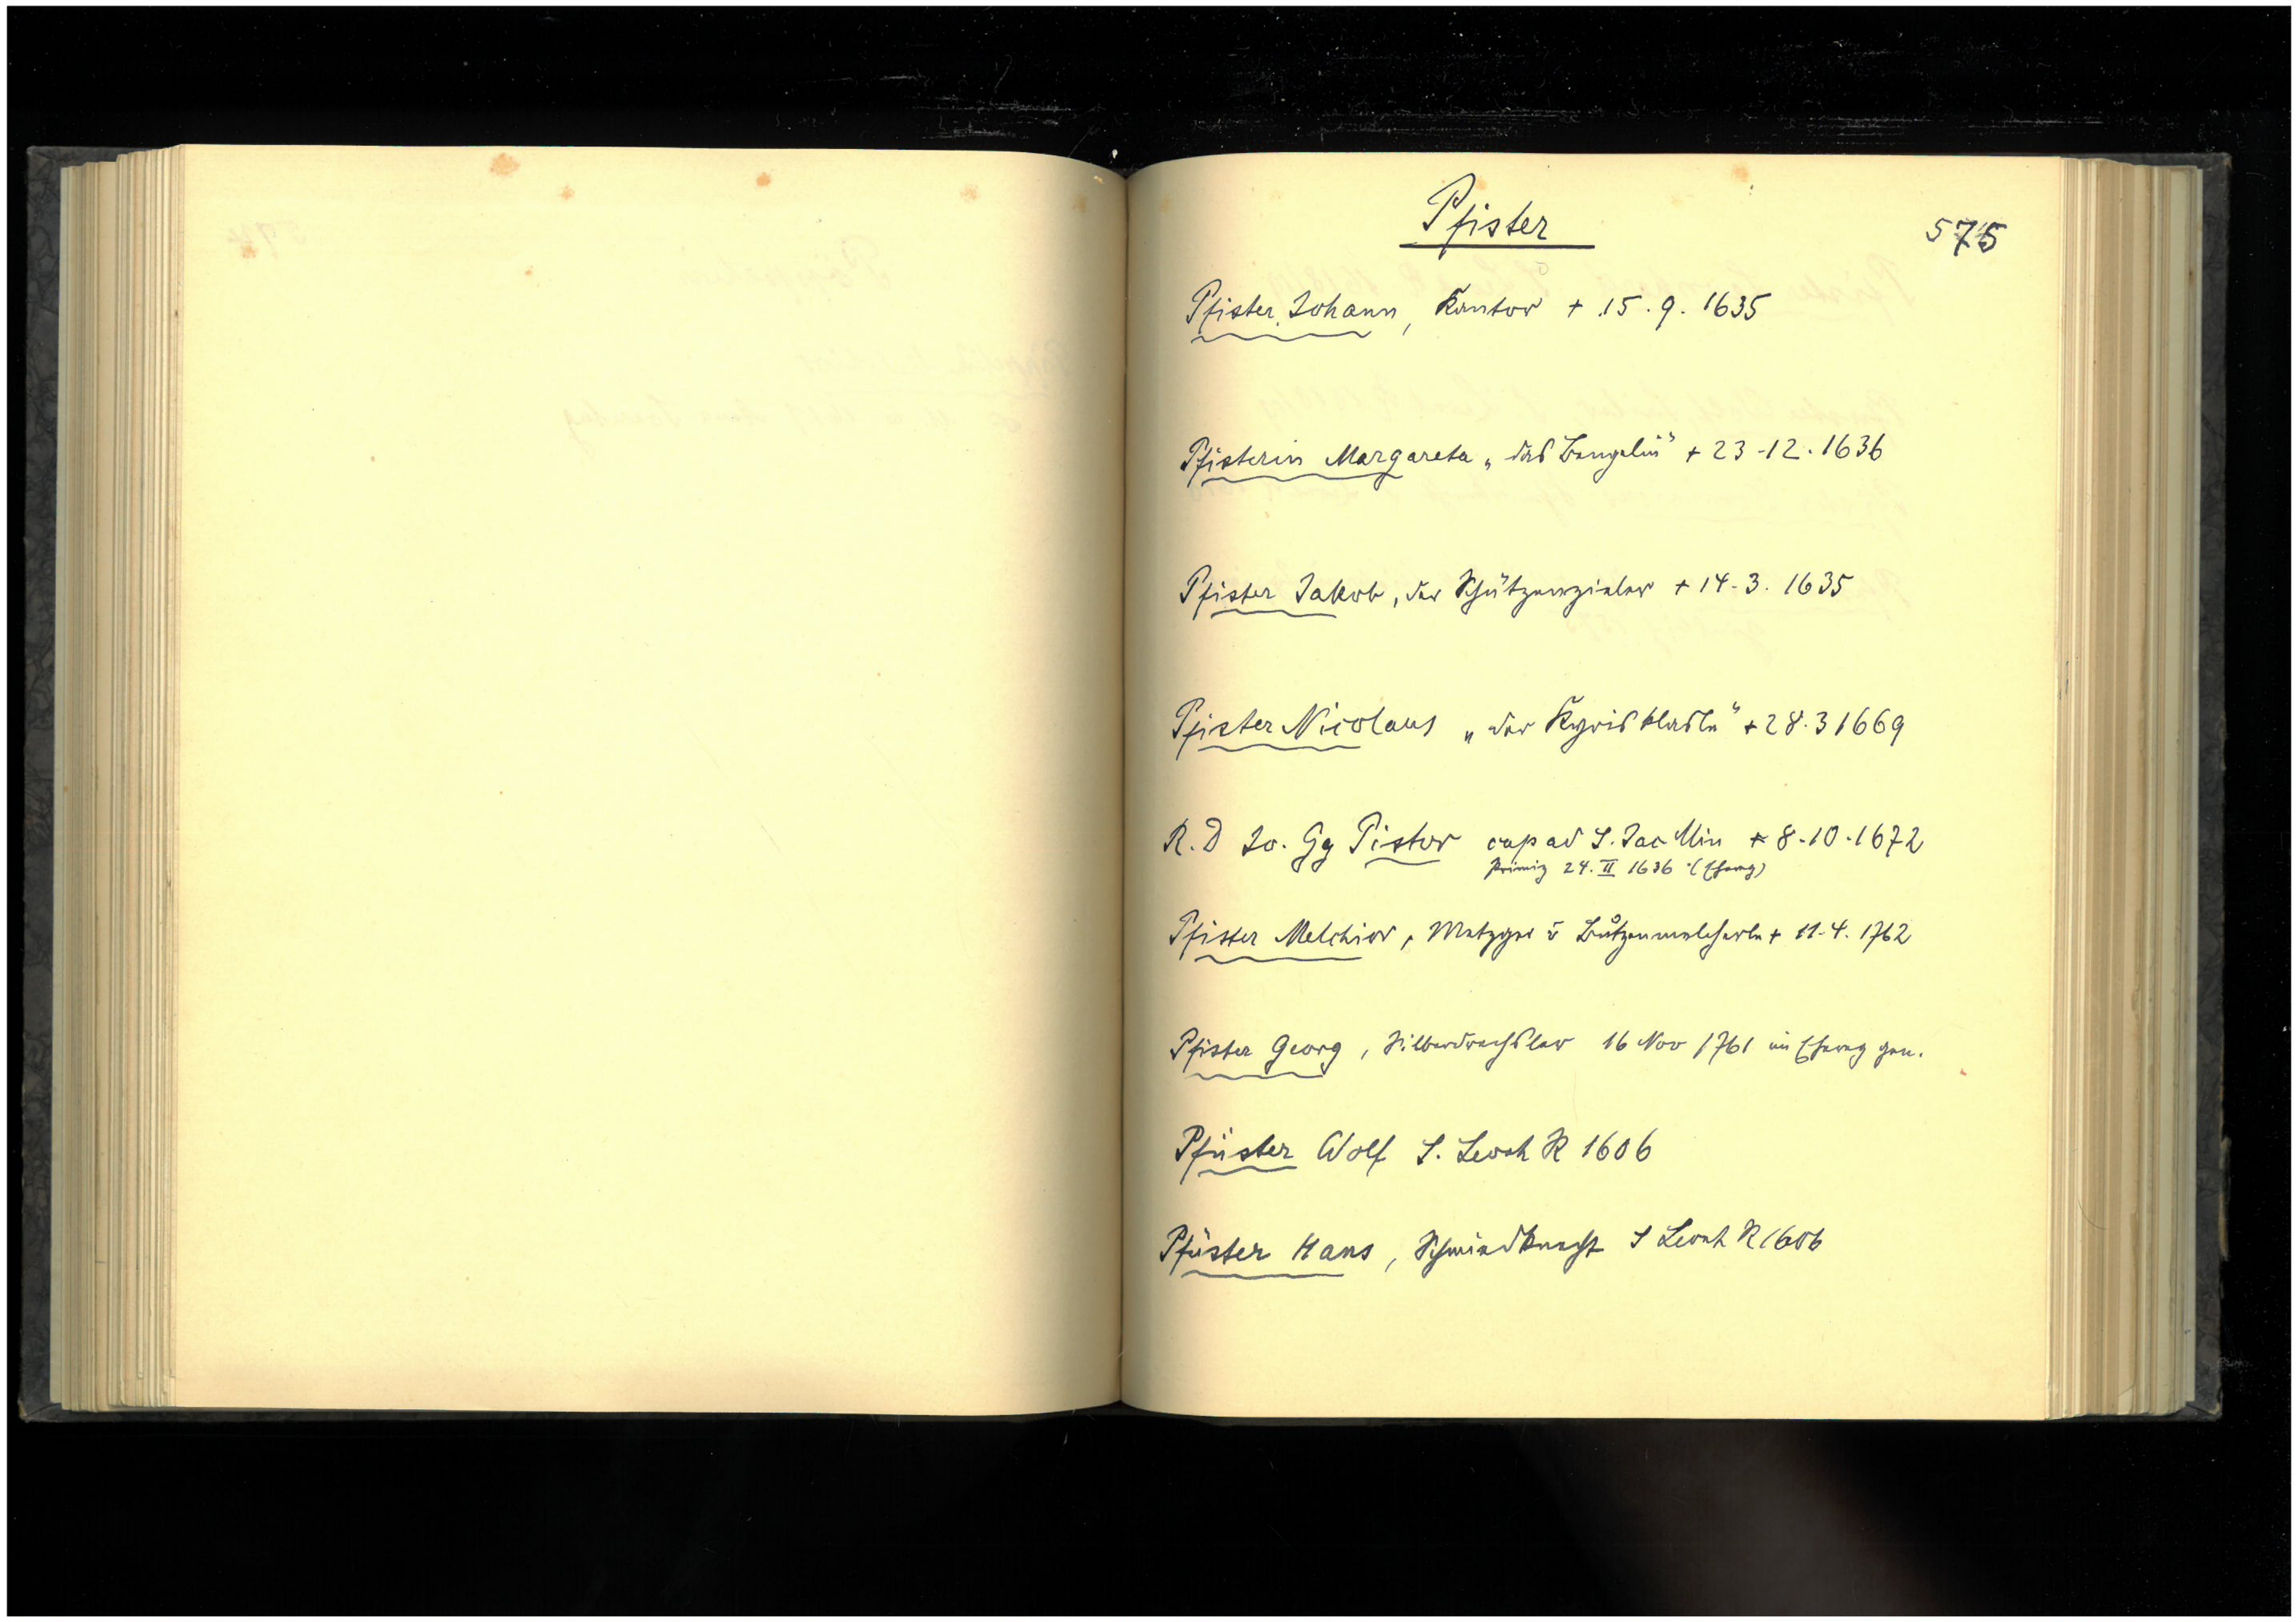 Pfister
575
Pfister Johann, Kantor + 15.9.1635
Pfisterin Margareta „das Bengelin" + 23-12.1636
Pfister Jakob, der Schützenzieler + 14-3.1635
Pfister Nicolaus „der" + 28.3 1669
R.D Jo. Gg Pistor cap ad S. Jac Min + 8-10-1672
Primiz 24. II 1636 (Eherg)
Pfister Melchior, Metzger + 11-4.1762
Pfister Georg, Silberdrechsler 16 Nov 1761 im Eherg gen.
Pfüster Wolf S. Leonh R 1606
Pfüster Hans, Schmiedknecht S Leonh R 1606